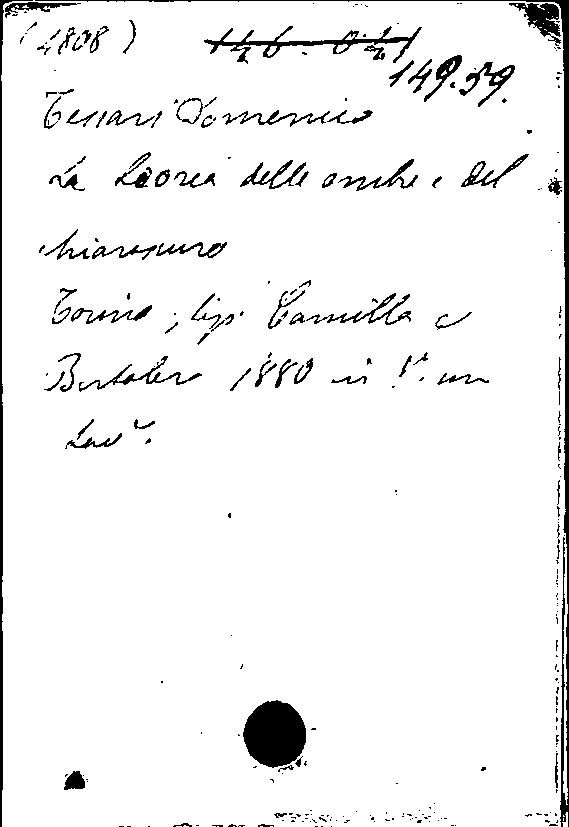 (4808) 146-041
149.59.
Tessari Domenico
La teoria delle ombre e del
chiaroscuro
Torino, tip. Camilla e
Bertolero 1880 in 8º. con
tavᵉ.